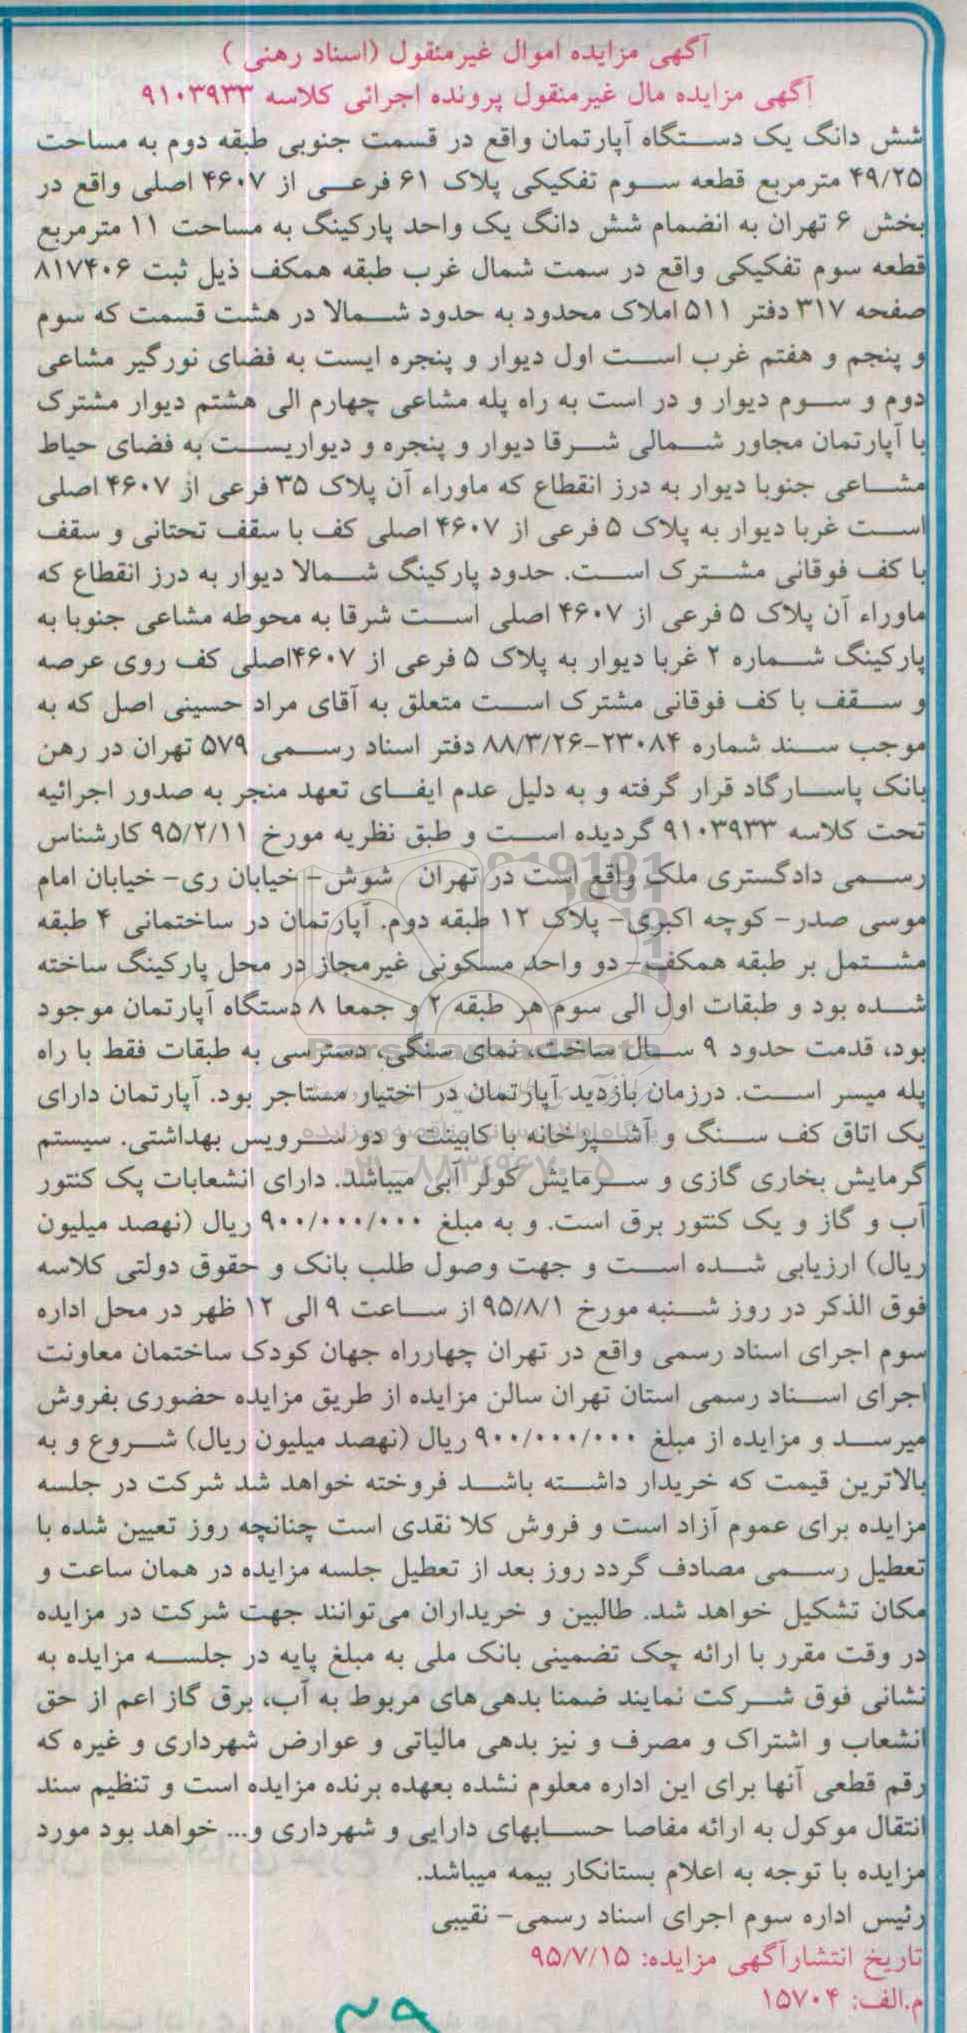 آگهی مزایده اموال غیرمنقول (اسناد رهنی )
آگهی مزایده مال غیرمنقول پرونده اجرائی کلاسه ۹۱۰۳۹۳۳
شش دانگ یک دستگاه آپارتمان واقع در قسمت جنوبی طبقه دوم به مساحت
۴۹/۲۵ مترمربع قطعه سوم تفکیکی پلاک ۶۱ فرعی از ۴۶۰۷ اصلی واقع در
بخش ۶ تهران به انضمام شش دانگ یک واحد پارکینگ به مساحت ۱۱ مترمربع
قطعه سوم تفکیکی واقع در سمت شمال غرب طبقه همکف ذیل ثبت ۸۱۷۴۰۶
صفحه ۳۱۷ دفتر ۵۱۱ املاک محدود به حدود شمالا در هشت قسمت که سوم
و پنجم و هفتم غرب است اول دیوار و پنجره ایست به فضای نورگیر مشاعی
دوم و سوم دیوار و در است به راه پله مشاعی چهارم الی هشتم دیوار مشترک
با آپارتمان مجاور شمالی شرقا دیوار و پنجره و دیواریست به فضای حیاط
مشاعی جنوبا دیوار به درز انقطاع که ماوراء آن پلاک ۳۵ فرعی از ۴۶۰۷ اصلی
است غربا دیوار به پلاک ۵ فرعی از ۴۶۰۷ اصلی کف با سقف تحتانی و سقف
با کف فوقانی مشترک است. حدود پارکینگ شمالا دیوار به درز انقطاع که
ماوراء آن پلاک ۵ فرعی از ۴۶۰۷ اصلی است شرقا به محوطه مشاعی جنوبا به
پارکینگ شماره ۲ غربا دیوار به پلاک ۵ فرعی از ۴۶۰۷اصلی کف روی عرصه
و سقف با کف فوقانی مشترک است متعلق به آقای مراد حسینی اصل که به
موجب سند شماره ۲۳۰۸۴-۸۸/۳/۲۶ دفتر اسناد رسمی ۵۷۹ تهران در رهن
بانک پاسارگاد قرار گرفته و به دلیل عدم ایفای تعهد منجر به صدور اجرائیه
تحت کلاسه ۹۱۰۳۹۳۳ گردیده است و طبق نظریه مورخ ۹۵/۲/۱۱ کارشناس
رسمی دادگستری ملک واقع است در تهران شوش- خیابان ری- خیابان امام
موسی صدر- کوچه اکبری- پلاک ۱۲ طبقه دوم. آپارتمان در ساختمانی ۴ طبقه
مشتمل بر طبقه همکف- دو واحد مسکونی غیرمجاز در محل پارکینگ ساخته
شده بود و طبقات اول الی سوم هر طبقه ۲ و جمعا ۸ دستگاه آپارتمان موجود
بود، قدمت حدود ۹ سال ساخت، نمای سنگی، دسترسی به طبقات فقط با راه
پله میسر است. درزمان بازدید آپارتمان در اختیار مستاجر بود. آپارتمان دارای
یک اتاق کف سنگ و آشپزخانه با کابینت و دو سرویس بهداشتی. سیستم
گرمایش بخاری گازی و سرمایش کولر آبی میباشد. دارای انشعابات یک کنتور
آب و گاز و یک کنتور برق است. و به مبلغ ۹۰۰/۰۰۰/۰۰۰ ریال (نهصد میلیون
ریال) ارزیابی شده است و جهت وصول طلب بانک و حقوق دولتی کلاسه
فوق الذکر در روز شنبه مورخ ۹۵/۸/۱ از ساعت ۹ الی ۱۲ ظهر در محل اداره
سوم اجرای اسناد رسمی واقع در تهران چهارراه جهان کودک ساختمان معاونت
اجرای اسناد رسمی استان تهران سالن مزایده از طریق مزایده حضوری بفروش
میرسد و مزایده از مبلغ ۹۰۰/۰۰۰/۰۰۰ ریال (نهصد میلیون ریال) شروع و به
بالاترین قیمت که خریدار داشته باشد فروخته خواهد شد شرکت در جلسه
مزایده برای عموم آزاد است و فروش کلا نقدی است چنانچه روز تعیین شده با
تعطیل رسمی مصادف گردد روز بعد از تعطیل جلسه مزایده در همان ساعت و
مکان تشکیل خواهد شد. طالبین و خریداران می‌توانند جهت شرکت در مزایده
در وقت مقرر با ارائه چک تضمینی بانک ملی به مبلغ پایه در جلسه مزایده به
نشانی فوق شرکت نمایند ضمنا بدهی‌های مربوط به آب، برق گاز اعم از حق
انشعاب و اشتراک و مصرف و نیز بدهی مالیاتی و عوارض شهرداری و غیره که
رقم قطعی آنها برای این اداره معلوم نشده بعهده برنده مزایده است و تنظیم سند
انتقال موکول به ارائه مفاصا حسابهای دارایی و شهرداری و... خواهد بود مورد
مزایده با توجه به اعلام بستانکار بیمه میباشد.
رئیس اداره سوم اجرای اسناد رسمی- نقیبی
تاریخ انتشارآگهی مزایده: ۹۵/۷/۱۵
م.الف: ۱۵۷۰۴
۲۹